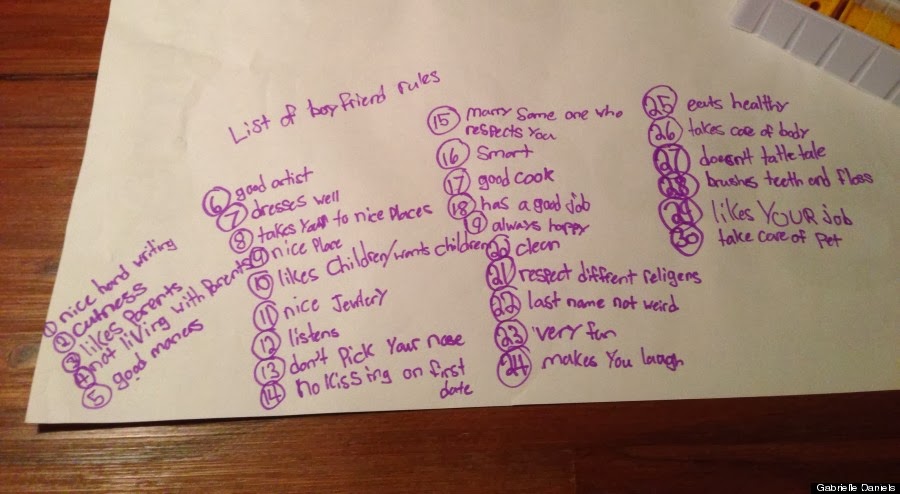 List of boyfriend rules
① nice hand writing
② cutness
③ likes parents
④ not living with Parents
⑤ good maners
⑥ good artist
⑦ dresses well
⑧ takes You to nice Places
⑨ nice Place
⑩ likes Children/wants children
⑪ nice Jewlery
⑫ listens
⑬ don't Pick Your nose
⑭ no kissing on first
date
⑮ marry some one who
respects You
⑯ Smart
⑰ good cook
⑱ has a good job
⑲ always happy
⑳ clean
㉑ respect diffrent religens
㉒ last name not weird
㉓ very fun
㉔ makes You laugh
㉕ eats healthy
㉖ takes care of body
㉗ doesn't tattle tale
㉘ brushes teeth and floss
㉙ likes YOUR job
㉚ take care of pet
Gabrielle Daniels